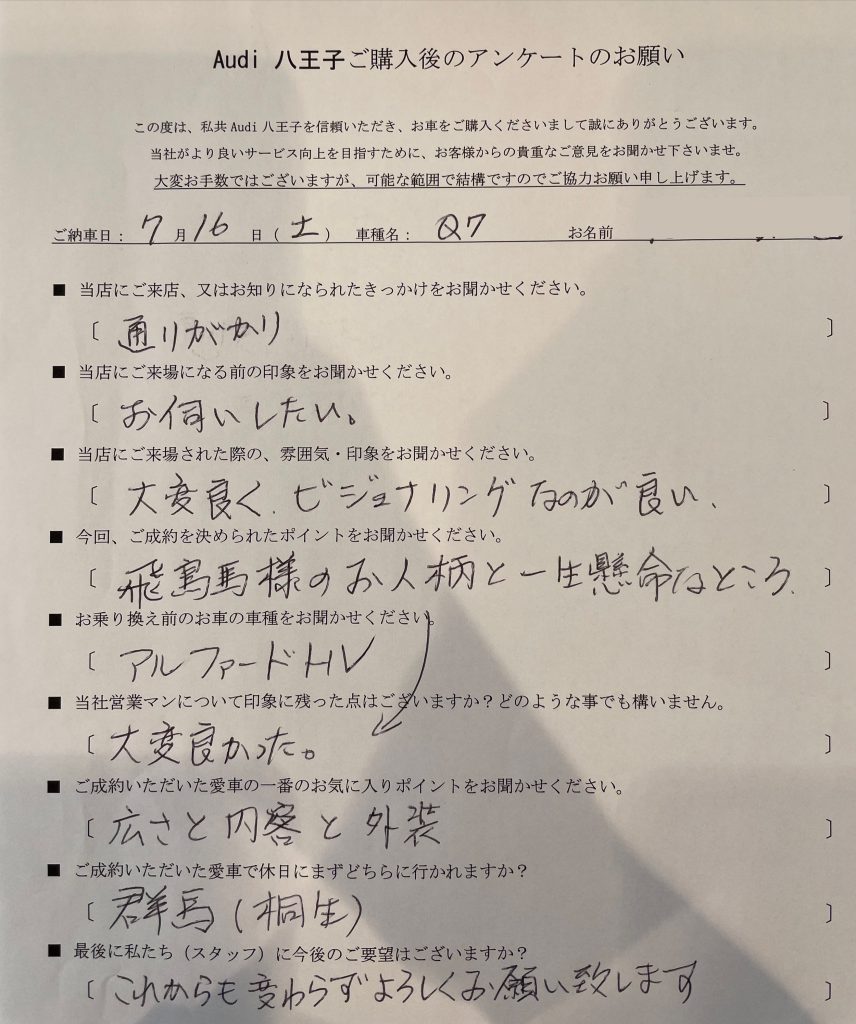 Audi 八王子ご購入後のアンケートのお願い
この度は、私共 Audi 八王子を信頼いただき、お車をご購入くださいまして誠にありがとうございます。
当社がより良いサービス向上を目指すために、お客様からの貴重なご意見をお聞かせ下さいませ。
大変お手数ではございますが、可能な範囲で結構ですのでご協力お願い申し上げます。
ご納車日： 7 月 16 日（ 土 ） 車種名： Q7 お名前
■ 当店にご来店、又はお知りになられたきっかけをお聞かせください。
〔 通りがかり 〕
■ 当店にご来場になる前の印象をお聞かせください。
〔 お伺いしたい。 〕
■ 当店にご来場された際の、雰囲気・印象をお聞かせください。
〔 大変良く、ビジョナリングなのが良い、 〕
■ 今回、ご成約を決められたポイントをお聞かせください。
〔 飛鳥馬様のお人柄と一生懸命なところ、 〕
■ お乗り換え前のお車の車種をお聞かせください。
〔 アルファードHV 〕
■ 当社営業マンについて印象に残った点はございますか？どのような事でも構いません。
〔 大変良かった。 〕
■ ご成約いただいた愛車の一番のお気に入りポイントをお聞かせください。
〔 広さと内容と外装 〕
■ ご成約いただいた愛車で休日にまずどちらに行かれますか？
〔 群馬（桐生） 〕
■ 最後に私たち（スタッフ）に今後のご要望はございますか？
〔 これからも変わらずよろしくお願い致します 〕